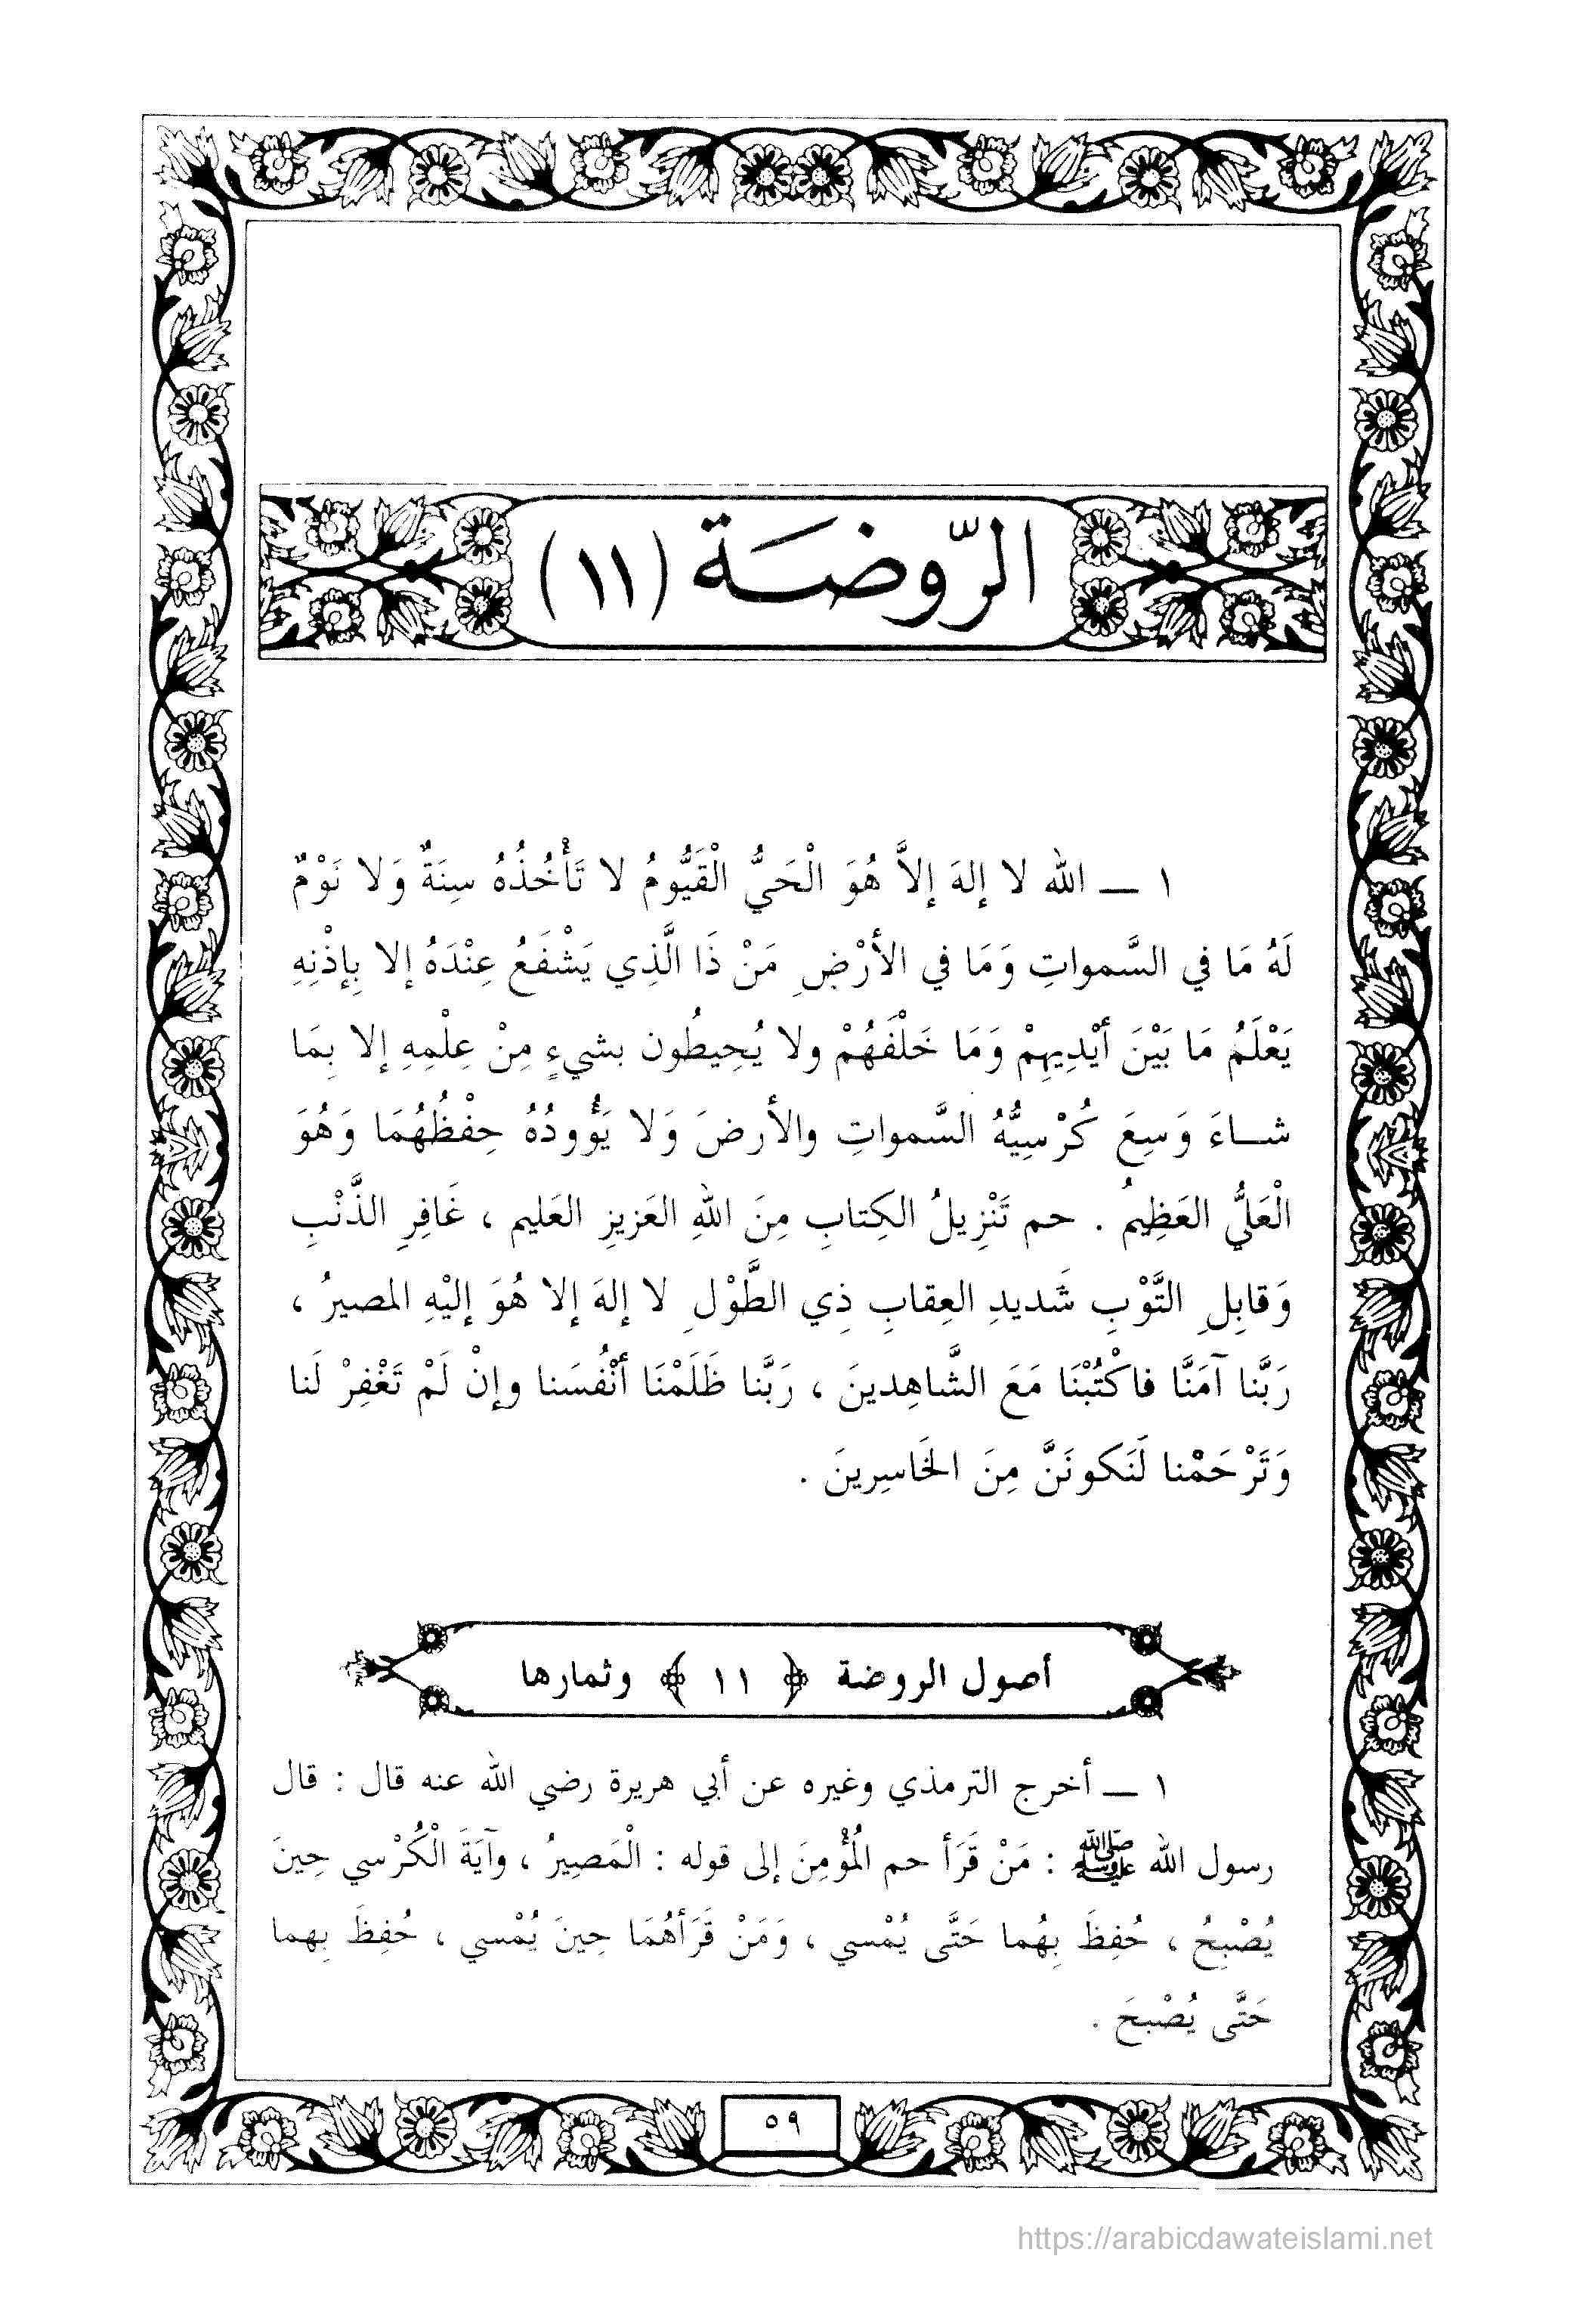 الرّوضَة (١١)
١ ـــ الله لا إلهَ إلاَّ هُوَ الْحَيُّ الْقَيُّومُ لا تَأْخُذُهُ سِنَةٌ وَلا نَوْمٌ
لَهُ مَا في السَّمواتِ وَمَا في الأرْضِ مَنْ ذَا الَّذِي يَشْفَعُ عِنْدَهُ إلا بِإذْنِهِ
يَعْلَمُ مَا بَيْنَ أيْدِيهِمْ وَمَا خَلْفَهُمْ ولا يُحِيطُون بشيءٍ مِنْ عِلْمِهِ إلا بِمَا
شــاءَ وَسِعَ كُرْسِيُّهُ السَّمواتِ والأرضَ وَلا يَؤُودُهُ حِفْظُهُمَا وَهُوَ
الْعَليُّ العَظِيمُ . حم تَنْزِيلُ الكِتابِ مِنَ اللهِ العَزيزِ العَليم ، غَافِرِ الذَّنْبِ
وَقابِلِ التَّوْبِ شَديدِ العِقابِ ذِي الطَّوْلِ لا إلهَ إلا هُوَ إليْهِ المصيرُ ،
رَبَّنا آمَنَّا فاكْتُبْنَا مَعَ الشَّاهِدينَ ، رَبَّنا ظَلَمْنَا أنْفُسَنا وإنْ لَمْ تَغْفِرْ لَنا
وَتَرْحَمْنا لَنَكونَنَّ مِنَ الخَاسِرينَ .
أصول الروضة ﴿ ١١ ﴾ وثمارها
١ ـــ أخرج الترمذي وغيره عن أبي هريرة رضي الله عنه قال : قال
رسول الله ﷺ : مَنْ قَرَأ حم المُؤْمِنَ إلى قوله : الْمَصِيرُ ، وآيَةَ الْكُرْسي حِينَ
يُصْبِحُ ، حُفِظَ بِهُما حَتَّى يُمْسي ، وَمَنْ قَرَأهُمَا حِينَ يُمْسي ، حُفِظَ بِهما
حَتَّى يُصْبحَ .
٥٩
https://arabicdawateislami.net